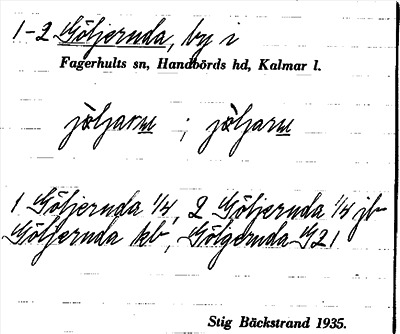 1-2 Göljernda, by i
Fagerhults sn, Handbörds hd, Kalmar l.
jöljarnɯ ; jöljarnɯ
1 Göljernda 1/4, 2 Göljernda 1/4 jb
Göljernda kb, Gölgernda G21
Stig Bäckstrand 1935.